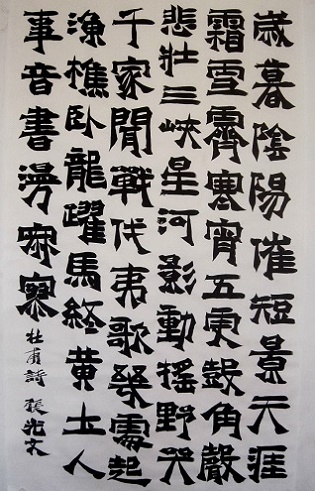 歲暮陰陽催短景天涯
霜雪霽寒宵五更鼓角聲
悲壯三峽星河影動搖野哭
千家聞戰伐夷歌幾處起
漁樵臥龍躍馬終黃土人
事音書漫寂寥 杜甫詩 張